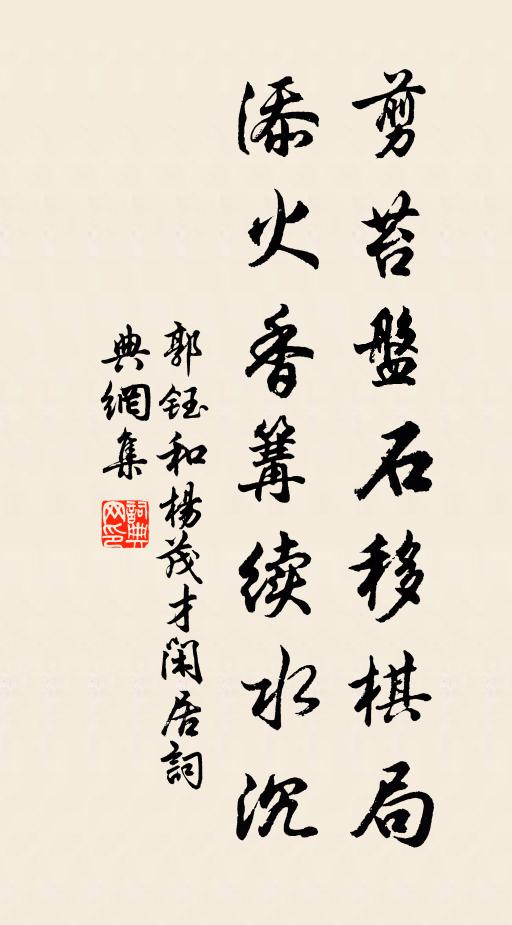 剪苔盤石移棋局
添火香篝续水沉
郭鈺和楊茂才閑居詞
典網集
詞典网印